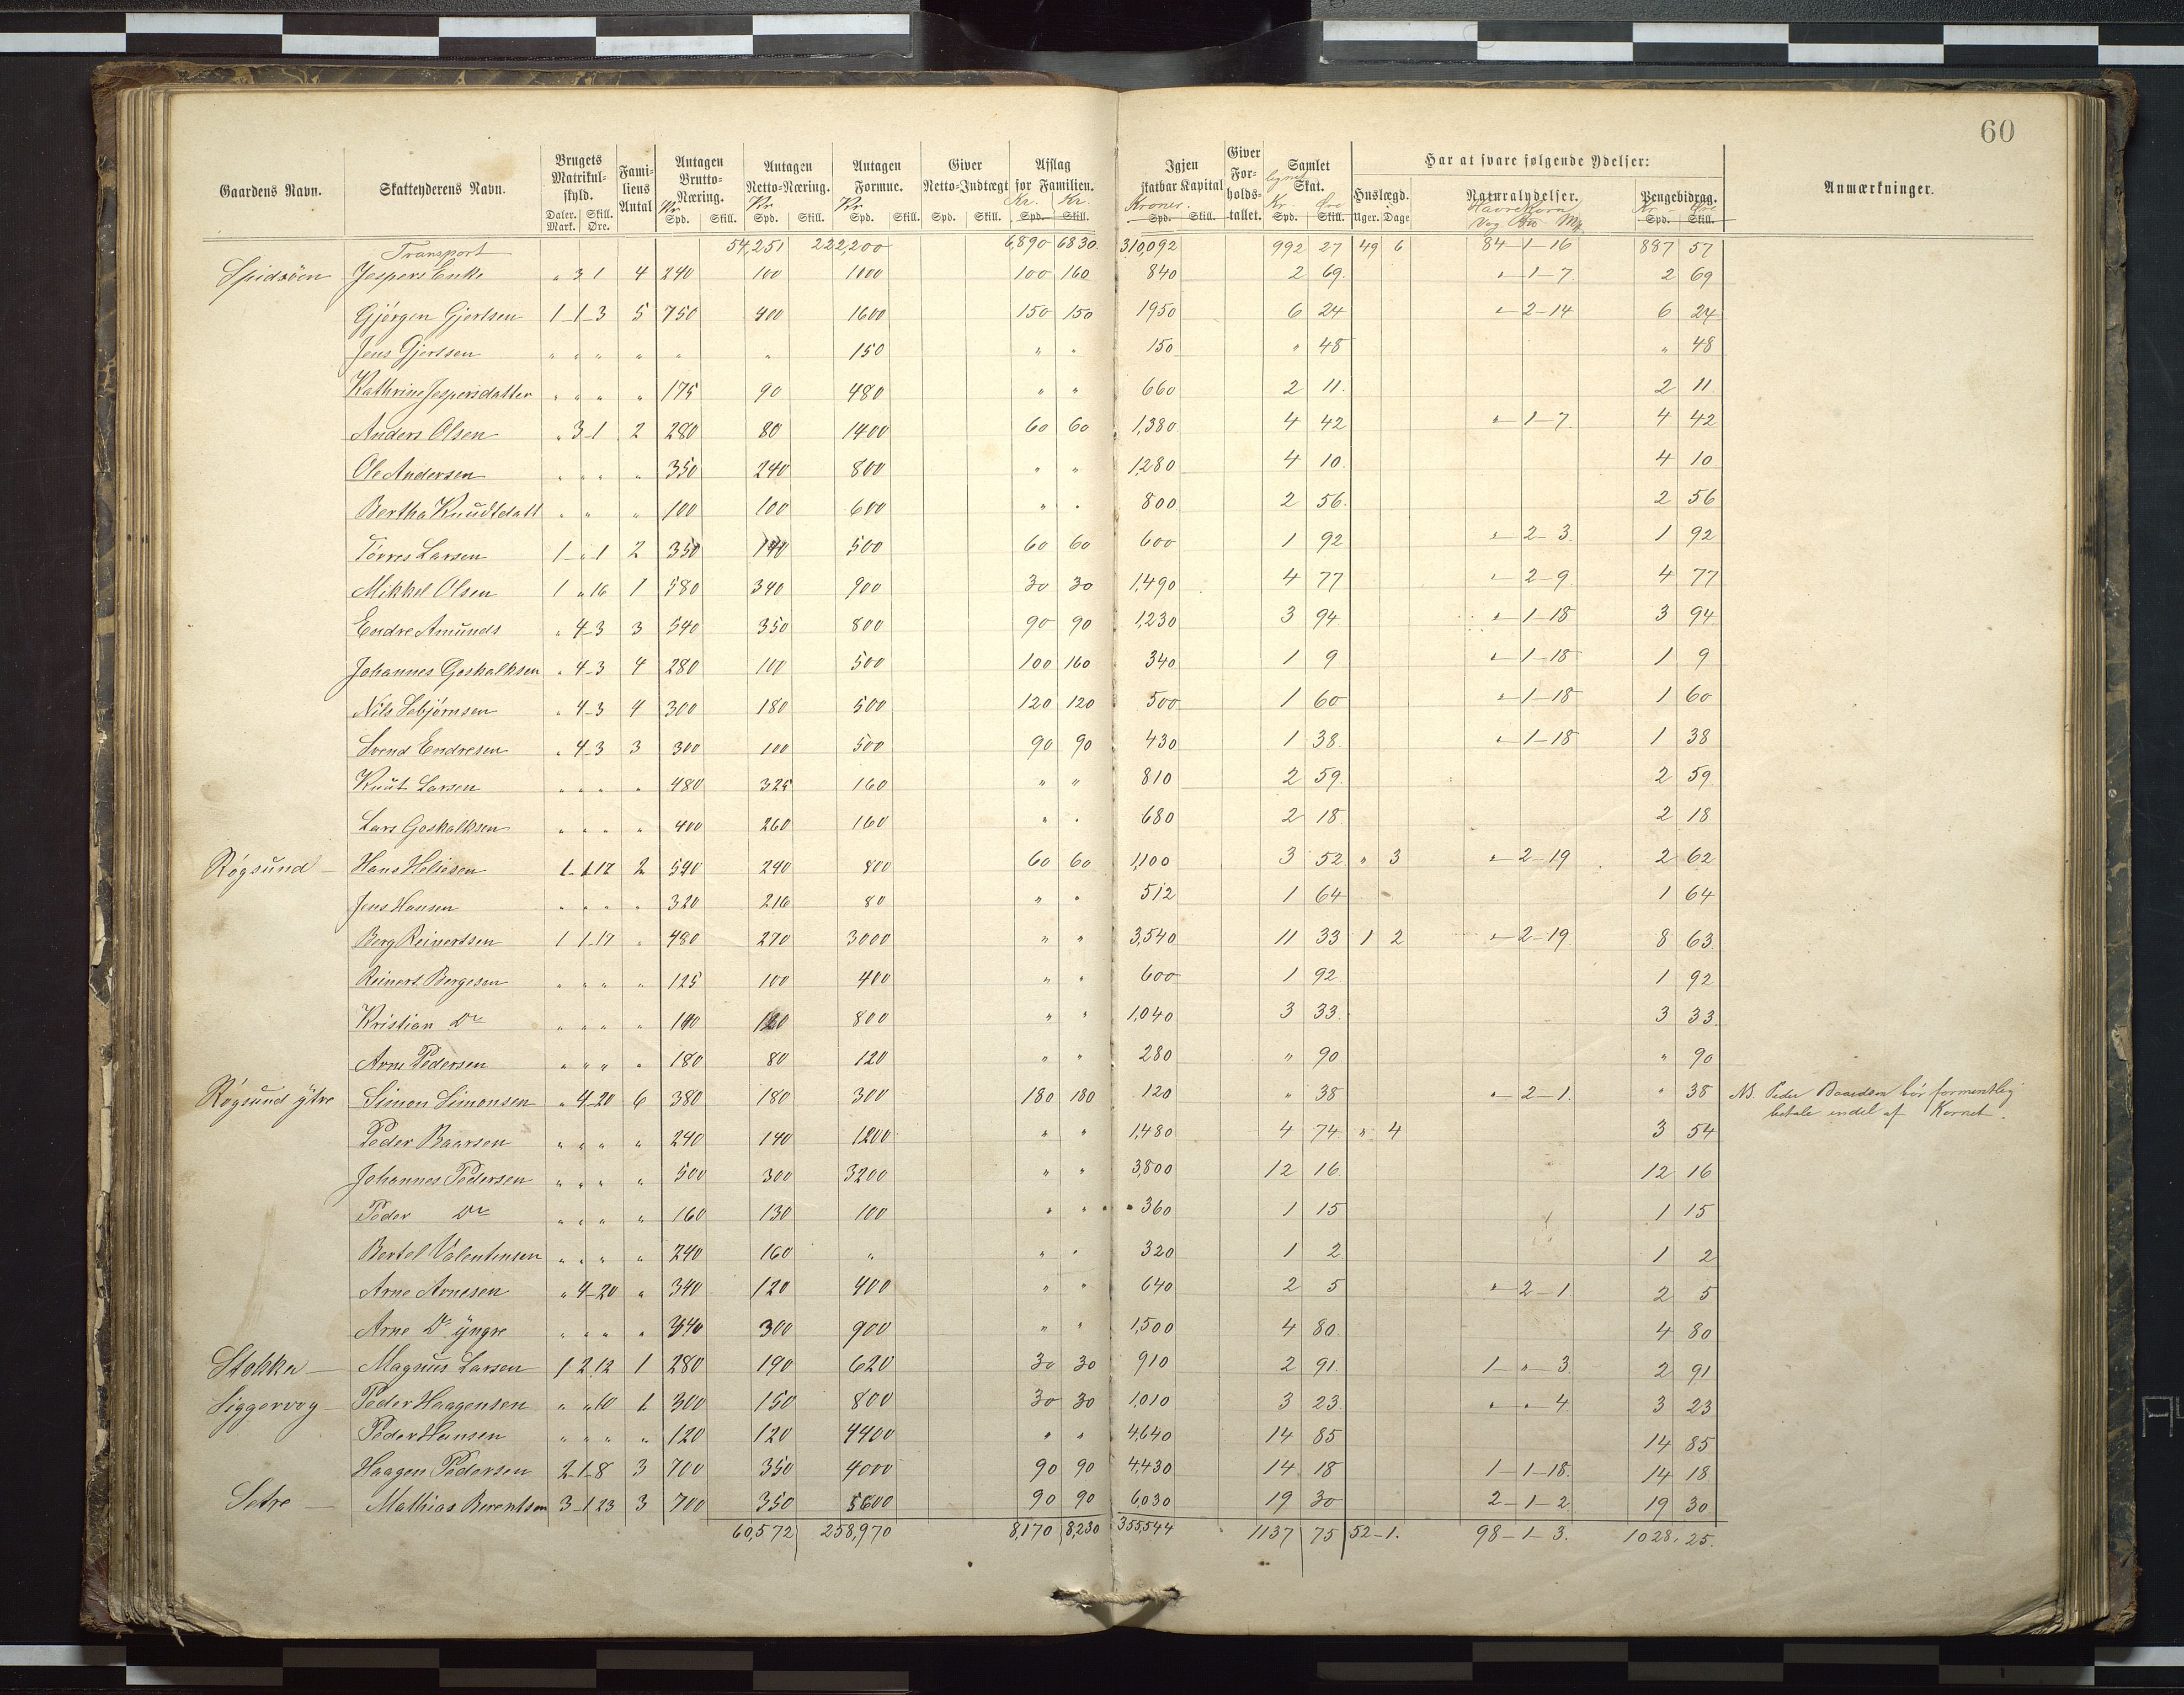 60
Gaardens Navn. Skatteyderens Navn. Brugets Matrikul-skyld. Daler. Mark. Skill. Øre. Fami-liens Antal Antagen Brutto-Næring. Kr Spd. Skill. Antagen Netto-Næring. Kr Spd. Skill. Antagen Formue. Kr Spd. Skill. Giver Netto-Indtægt Spd. Skill. Afslag for Familien. Kr. Kr. Spd. Skill. Igjen skatbar Kapital Kroner. Spd. Skill. Giver For-holds-tallet. Samlet lignet Skat. Kr. Øre Spd. Skill. Har at svare følgende Ydelser: Huslægd. Uger. Dage Naturalydelser. Havrekorn Vog Mk. Pengebidrag. Kr Øre Spd. Skill. Anmærkninger.
Transport 54,251 222,200 6,890 6830 310,092 992 27 49 6 84-1-16 887 57
Spidsöen Jespers Enke " 3 1 4 240 100 1000 100 160 840 2 69. "-1-7 2 69
Gjörgen Gjertsen 1-1-3 5 750 400 1600 150 150 1950 6 24 "-2-14 6 24
Jens Gjertsen " " " " " " 150 " " 150 " 48 " 48
Kathrine Jespersdatter " " " " 175 90 480 " " 660 2 11. 2 11.
Anders Olsen " 3 1 2 280 80 1400 60 60 1,380 4 42 "-1-7 4 42
Ole Andersen " " " " 350 240 800 " " 1,280 4 10. 4 10
Bertha Knudtdatt " " " 100 100 600 " " 800 2 56. 2 56
Törres Larsen 1-"-1 2 350 140 500 60 60 600 1 92 "-2-3. 1 92
Mikkel Olsen 1 " 16 1 580 340 900 30 30 1,490 4 77 "-2-9 4 77
Endre Amunds " 4-3 3 540 350 800 90 90 1,230 3 94 "-1-18 3 94
Johannes Goskalksen " 4-3 4 280 100 500 100 160 340 1 9 "-1-18 1 9
Nils Sebjörnsen " 4-3 4 300 180 500 120 120 500 1 60 "-1-18 1 60
Svend Endresen " 4-3 3 300 100 500 90 90 430 1 38. "-1-18 1 38
Knut Larsen " " " " 480 325 160 " " 810 2 59. 2 59.
Lars Goskalksen " " " " 400 260 160 " " 680 2 18 2 18
Rögsund - Hans Heliesen 1-1.17 2 540 240 800 60 60 1,100 3 52 " 3 "-2-19 2 62
Jens Hansen " " " " 320 216 80 " " 512 1 64 1 64
Berg Reinertsen 1 1-17 " 480 270 3000 " " 3,540 11 33 1 2 "-2-19 8 63
Reinert Bergesen " " " " 125 100 400 " " 600 1 92 1 92
Kristian Do " " " " 140 120 800 " " 1,040 3 33. 3 33.
Arne Pedersen " " " " 180 80 120 " " 280 " 90 " 90
Rögsund ÿtre Simon Simonsen " 4-20 6 380 180 300 180 180 120 " 38 "-2-1. " 38 NB. Peder Baardsen bör formentlig
betale endel af Kornet.
Peder Baarsen " " " " 240 140 1200 " " 1,480 4 74 " 4 3 54
Johannes Pedersen " " " " 500 300 3200 " " 3,800 12 16 12 16
Peder Do " " " " 160 130 100 " " 360 1 15 1 15
Bertel Valentinsen " " " " 240 160 " " " 320 1 2 1 2
Arne Arnesen " 4-20 " 340 120 400 " " 640 2 5 "-2-1 2 5
Arne Do ÿngre " " " " 340 300 900 " " 1,500 4 80. 4 80
Stokka - Magnus Larsen 1 2 12 1 280 190 620 30 30 910 2 91. 1-"-3. 2 91
Siggervog - Peder Haagensen " " 10 1 300 150 800 30 30 1,010 3 23 " " 4 3 23
Peder Hansen " " " " 120 120 4400 " " 4,640 14 85 14 85
Haagen Pedersen 2-1-8 3 700 350 4000 90 90 4,430 14 18 1-1-18. 14 18
Setre - Mathias Berentsen 3-1.23 3 700 350 5600 90 90 6,030 19 30 2-1-2 19 30
60,572 258,970 8,170 8,230 355,544 1137 75 52-1. 98-1-3. 1028. 25.